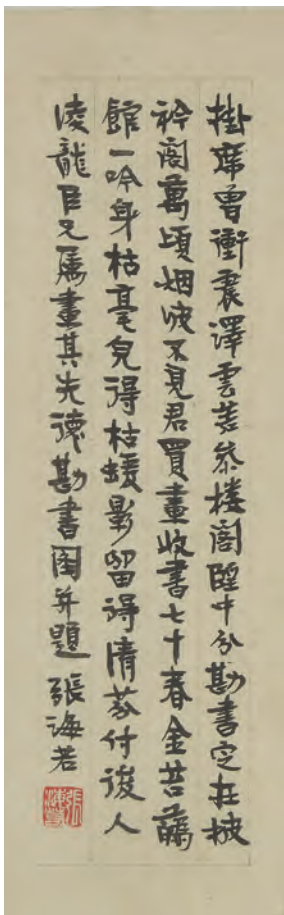 掛席曾衝震澤雲樓閣朢中分勘書定在披
衿閣萬頃烟波不見君買畫收書七十春金苕藕
館一吟身枯毫皃得枯蝯影留得清芬付後人
凌龍臣兄屬畫其先德勘書圖并題 張海若